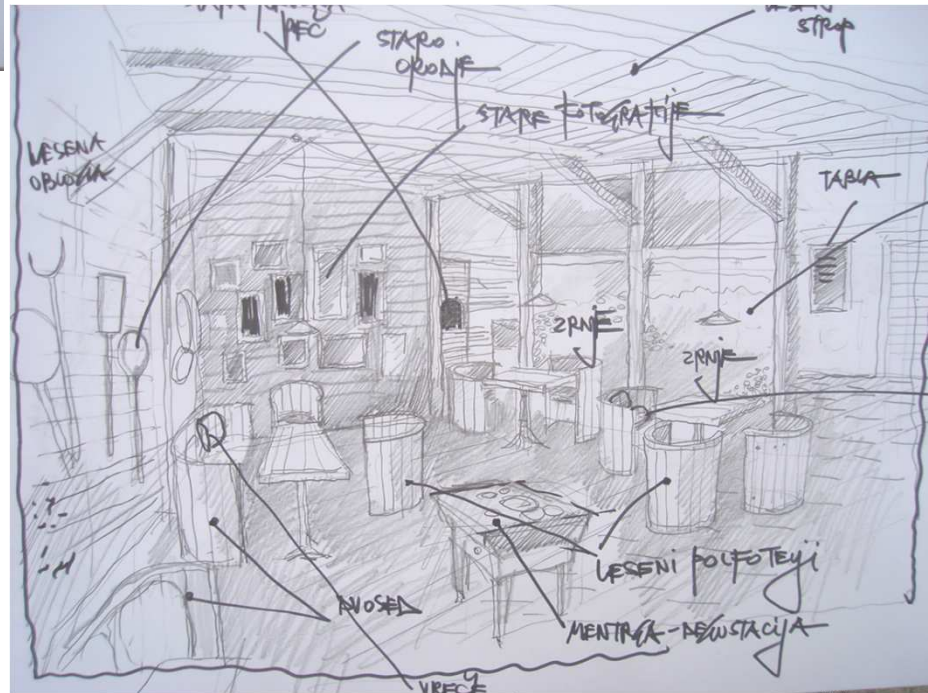 PEČ
STARO
ORODJE
STROP
STARE FOTOGRAFIJE
LESENA
OBLOGA
TABLA
ZRNJE
ZRNJE
LESENI POLFOTELJI
DVOSED
MENTRGA-DEGUSTACIJA
VREČE